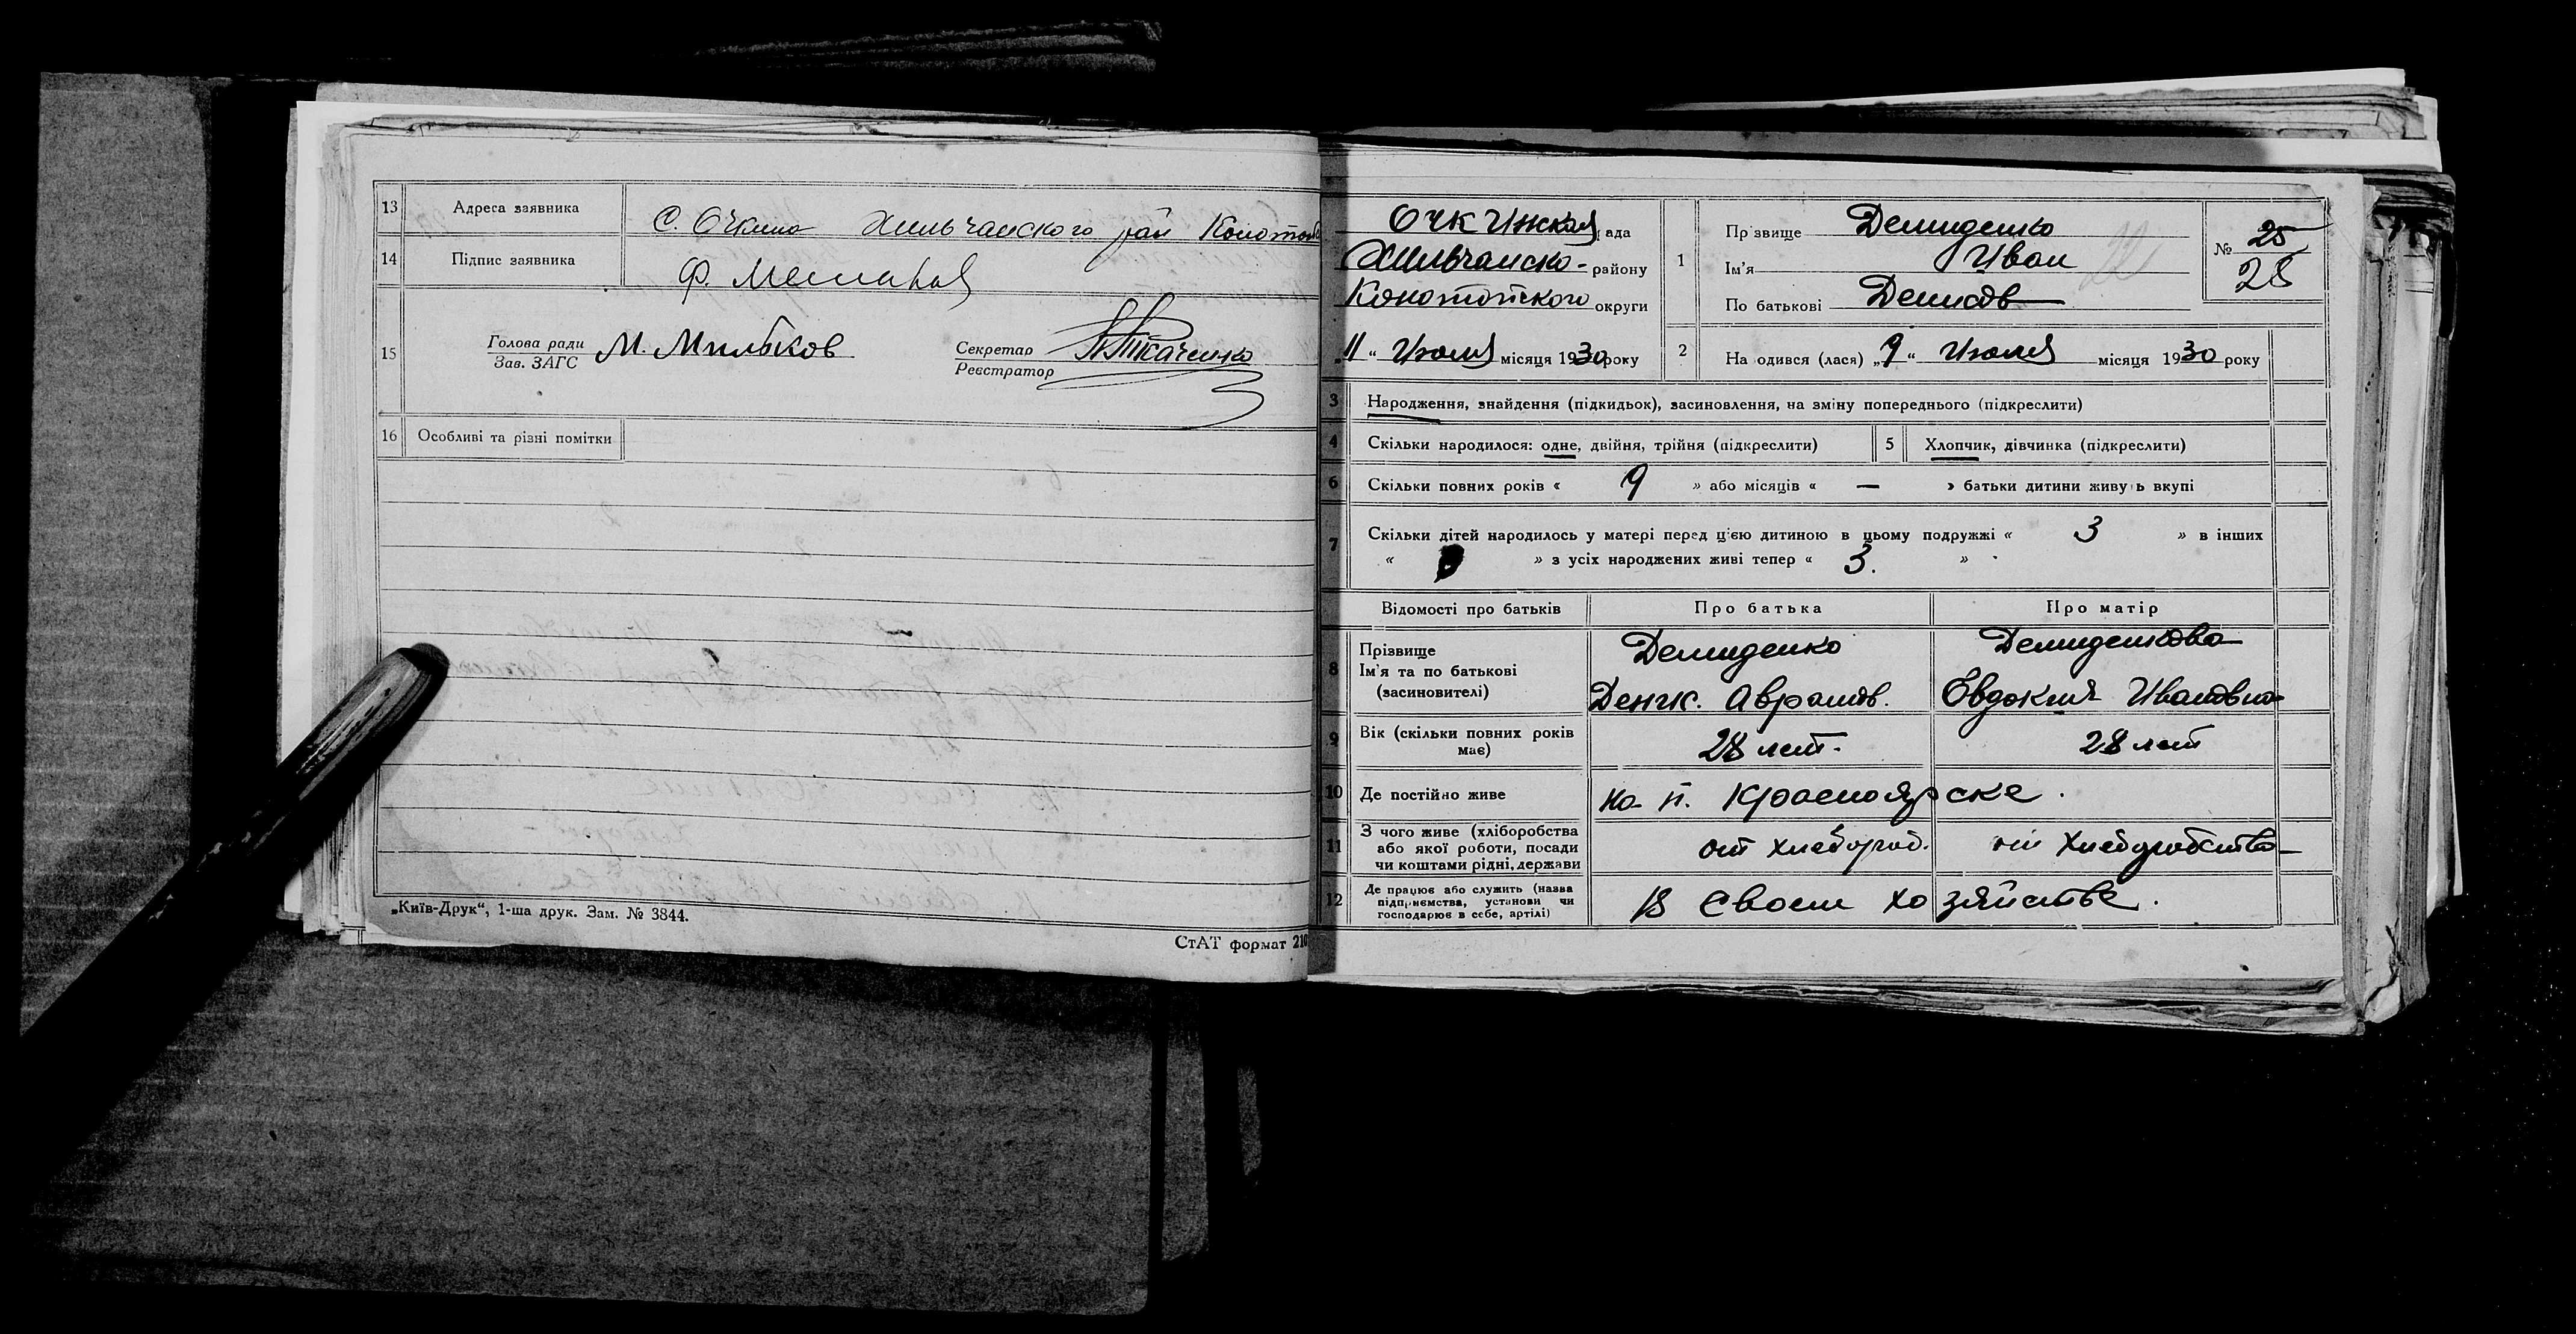 13 Адреса заявника С. Очкина Хильчанского рай Конотоп
14 Підпис заявника Ф.
15 Голова ради М. Мильков Секретар Ткаченко
Зав. ЗАГС Реєстратор
16 Особливі та різні помітки
„Київ-Друк“, 1-ша друк. Зам. № 3844.
СтАТ формат 210
Очкинская рада
Хильчанско- району
Конотопского округи
„11“ Июля місяця 1930 року
1 Прізвище Демиденко
Ім'я Иван
По батькові Денисов
№ 25
28
2 На одився (лася) „9“ Июля місяця 1930 року
3 Народження, знайдення (підкидьок), засиновлення, на зміну попереднього (підкреслити)
4 Скільки народилося: одне, двійня, трійня (підкреслити) 5 Хлопчик, дівчинка (підкреслити)
6 Скільки повних років « 9 » або місяців « — » батьки дитини живуть вкупі
7 Скільки дітей народилось у матері перед цією дитиною в цьому подружжі « 3 » в інших
« » з усіх народжених живі тепер « 3. »
Відомості про батьків Про батька Про матір
8 Прізвище Демиденко Демиденкова
Ім'я та по батькові
(засиновителі) Денис. Аврамов. Евдокия Ивановна
9 Вік (скільки повних років має) 28 лет. 28 лет
10 Де постійно живе на п. Красноярске.
11 З чого живе (хліборобства
або якої роботи, посади
чи коштами рідні, держави от хлебороб. от хлеборобства
12 Де працює або служить (назва
підприємства, установи чи
господарює в себе, артілі) в своем хозяйстве.